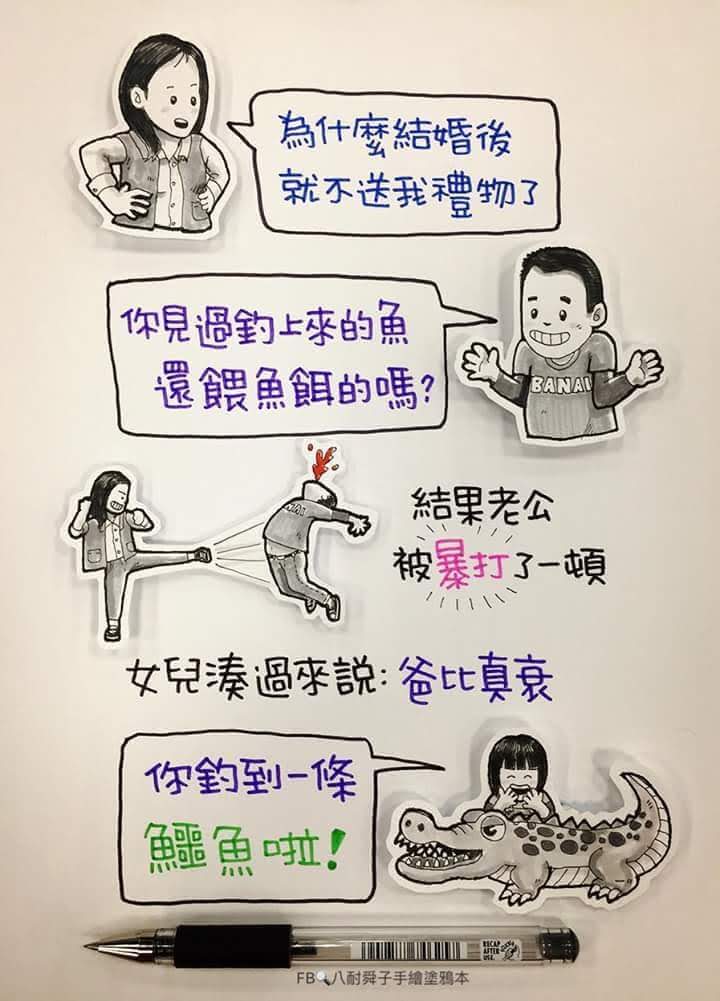 為什麼結婚後
就不送我禮物了
你見過釣上來的魚
還餵魚餌的嗎?
BANAI
AI
結果老公
被暴打了一頓
女兒湊過來説:爸比真衰
你釣到一條
鱷魚啦!
RECAP
AFTER
USE.
FB🔍八耐舜子手繪塗鴉本